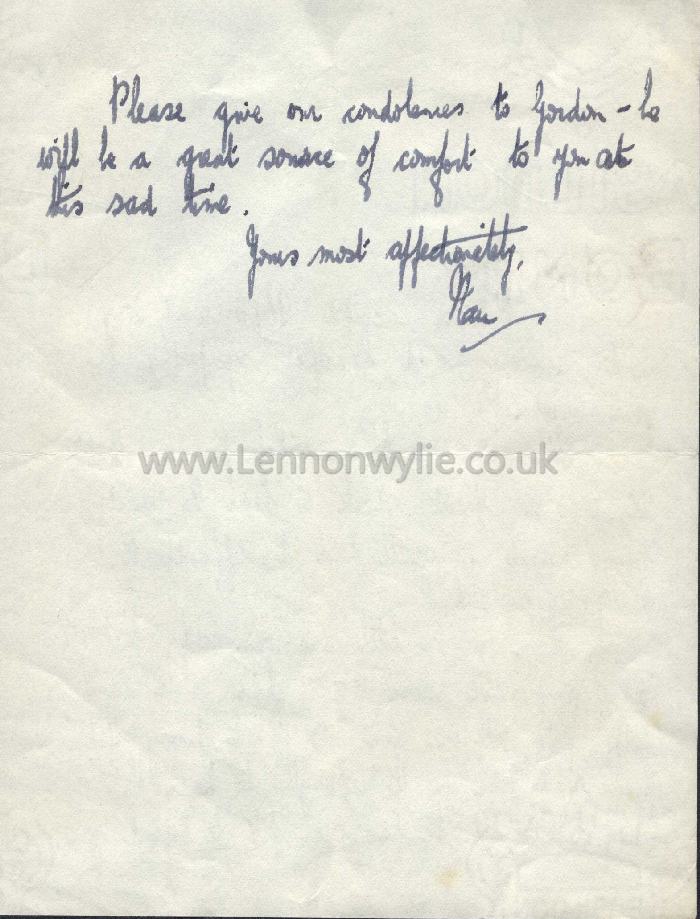 Please give our condolences to Gordon - he
will be a great source of comfort to you at
this sad time.
Yours most affectionately,
www.Lennonwylie.co.uk